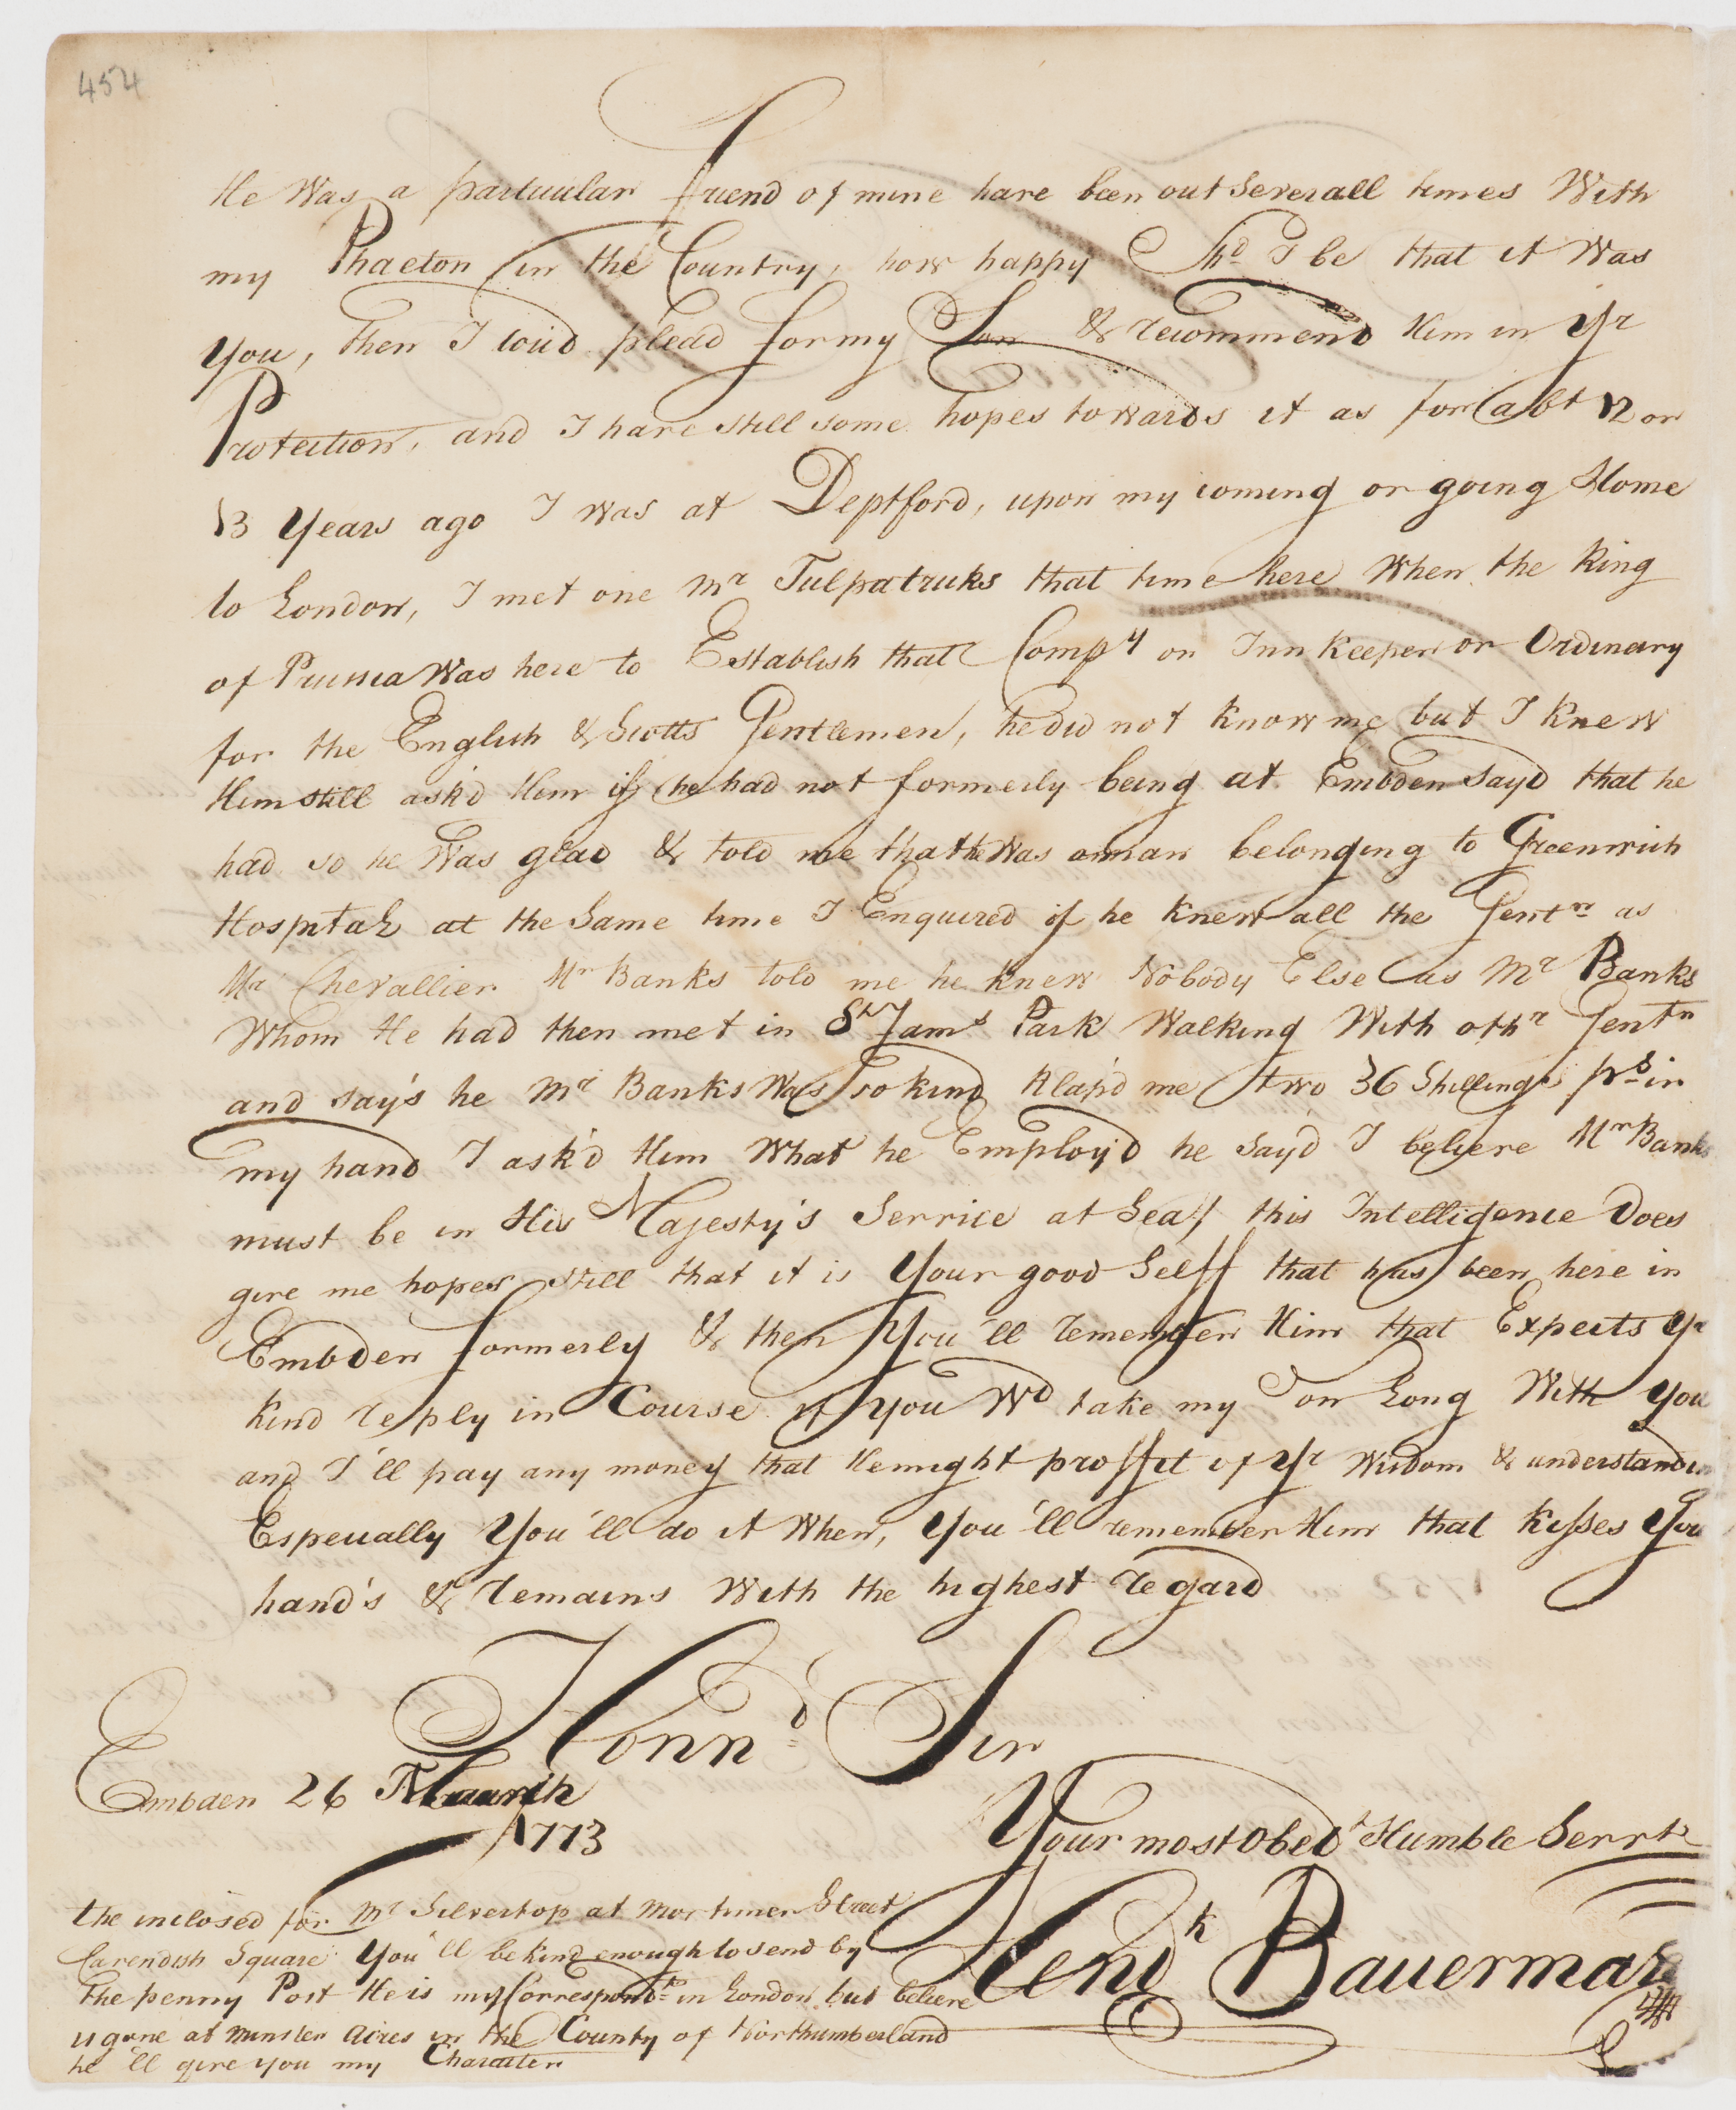 454
He Was a particular friend of mine have been out Severall times With
my Phaeton in the Country, how happy Shd. I be that it Was
you, then I coud plead for my Son & recommend Him in Yr
Protection, and I have still some hopes towards it as for abt 12 or
13 Years ago I was at Deptford, upon my coming or going Home
to London, I met one Mr that time here When the King
of Prussia Was here to Establish that Compy on Inn Keeper or Ordinary
for the English & Scotts Gentlemen, he did not Know me but I Knew
Him still ask'd Him if he had not formerly being at Embden Sayd that he
had so he Was glad & told me that he Was a man belonging to Greenwich
Hospital at the Same time I Enquired if he Knew all the Gentn as
Mr Chevallier Mr Banks told me he Knew Nobody Else as Mr Banks
Whom He had then met in St Jams Park Walking With othr Gentn
and say's he Mr Banks Was so kind Klap'd me two 36 Shillings ps. in
my hand I ask'd Him What he Employ'd he Say'd I believe Mr Banks
must be in His Majesty's Service at Sea, this Intelligence Does
give me hopes still that it is Your good Selff that has been here in
Embden formerly & then You'll remember Him that Expects Yr
Kind reply in Course if You Wd take my Son Long With You
and I'll pay any money that He might proffit of Yr Wisdom & understandin
Especially You'll do it When, You'll remember Him that Kisses You
hand's & remains With the highest regard
Honnd. Sir
Embden 26 March
1773
Your most Obedt Humble Servt
Hendk Bauerman
the inclosed for Mr Silvertop at Mortimer Street
Cavendish Square You'll be kind enough to send by
The penny Post He is my Correspondt in London but believe
is gone at Minster Acres in the County of Northumberland
he'll give you my Character